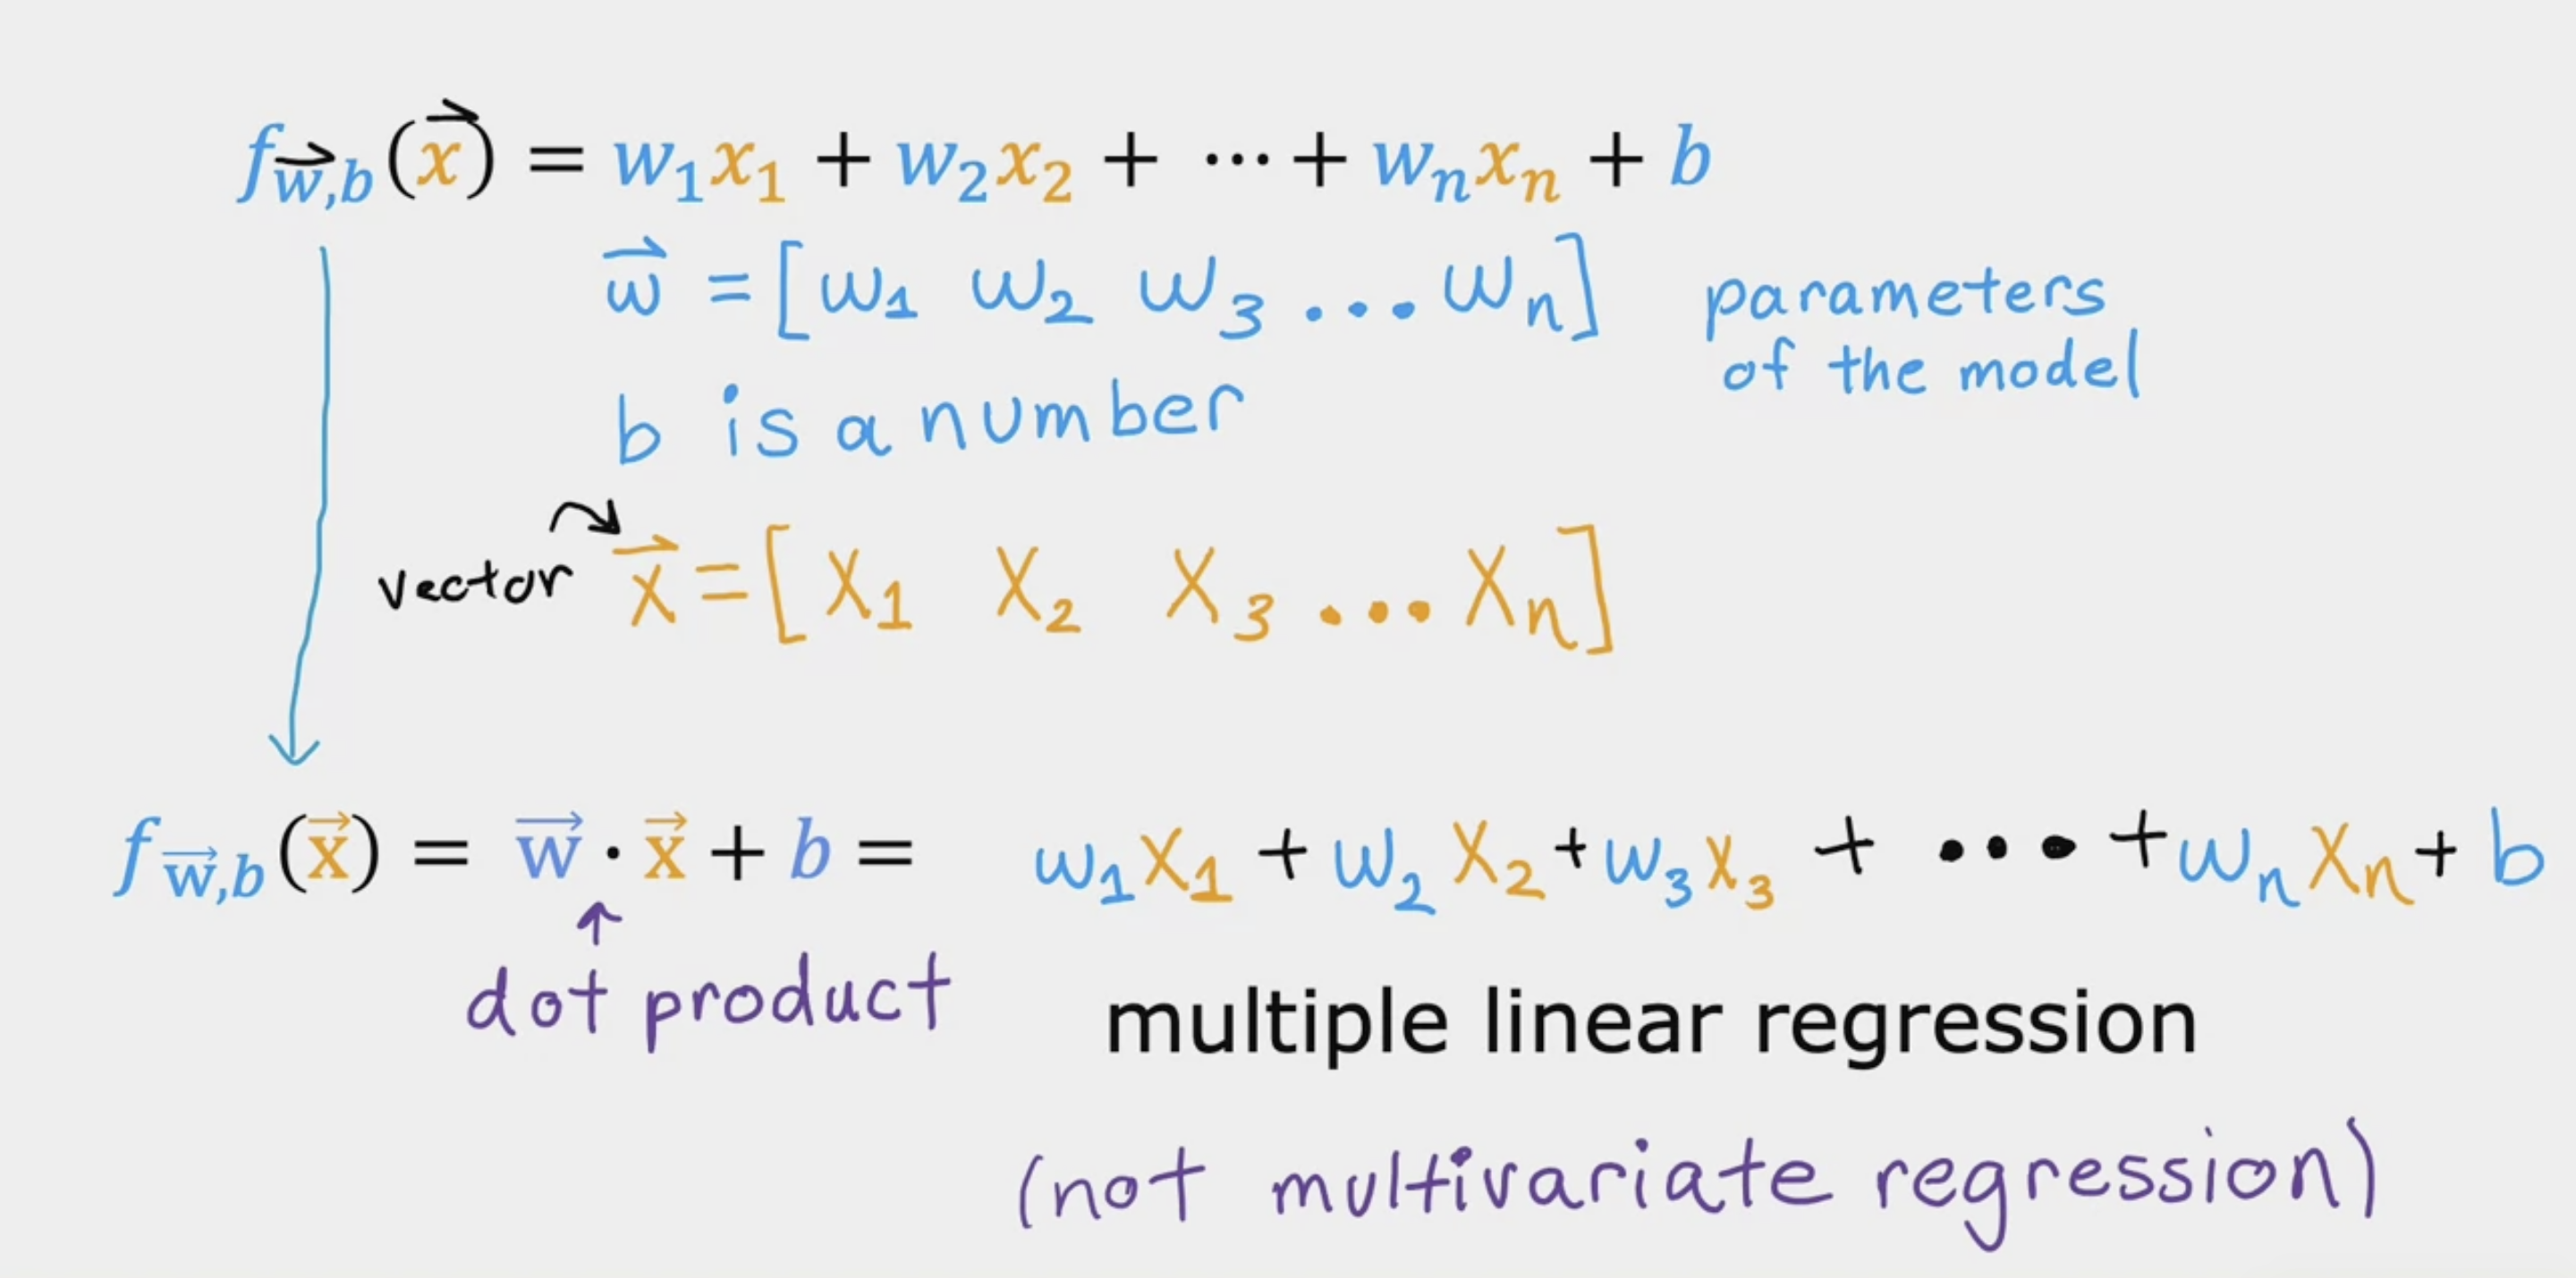 f_{w⃗,b}(x⃗) = w₁x₁ + w₂x₂ + ⋯ + wₙxₙ + b
w⃗ = [w₁ w₂ w₃ ... wₙ]
parameters
of the model
b is a number
vector x⃗ = [x₁ x₂ x₃ ... xₙ]
f_{w⃗,b}(x⃗) = w⃗ · x⃗ + b = w₁x₁ + w₂x₂ + w₃x₃ + ... + wₙxₙ + b
dot product
multiple linear regression
(not multivariate regression)